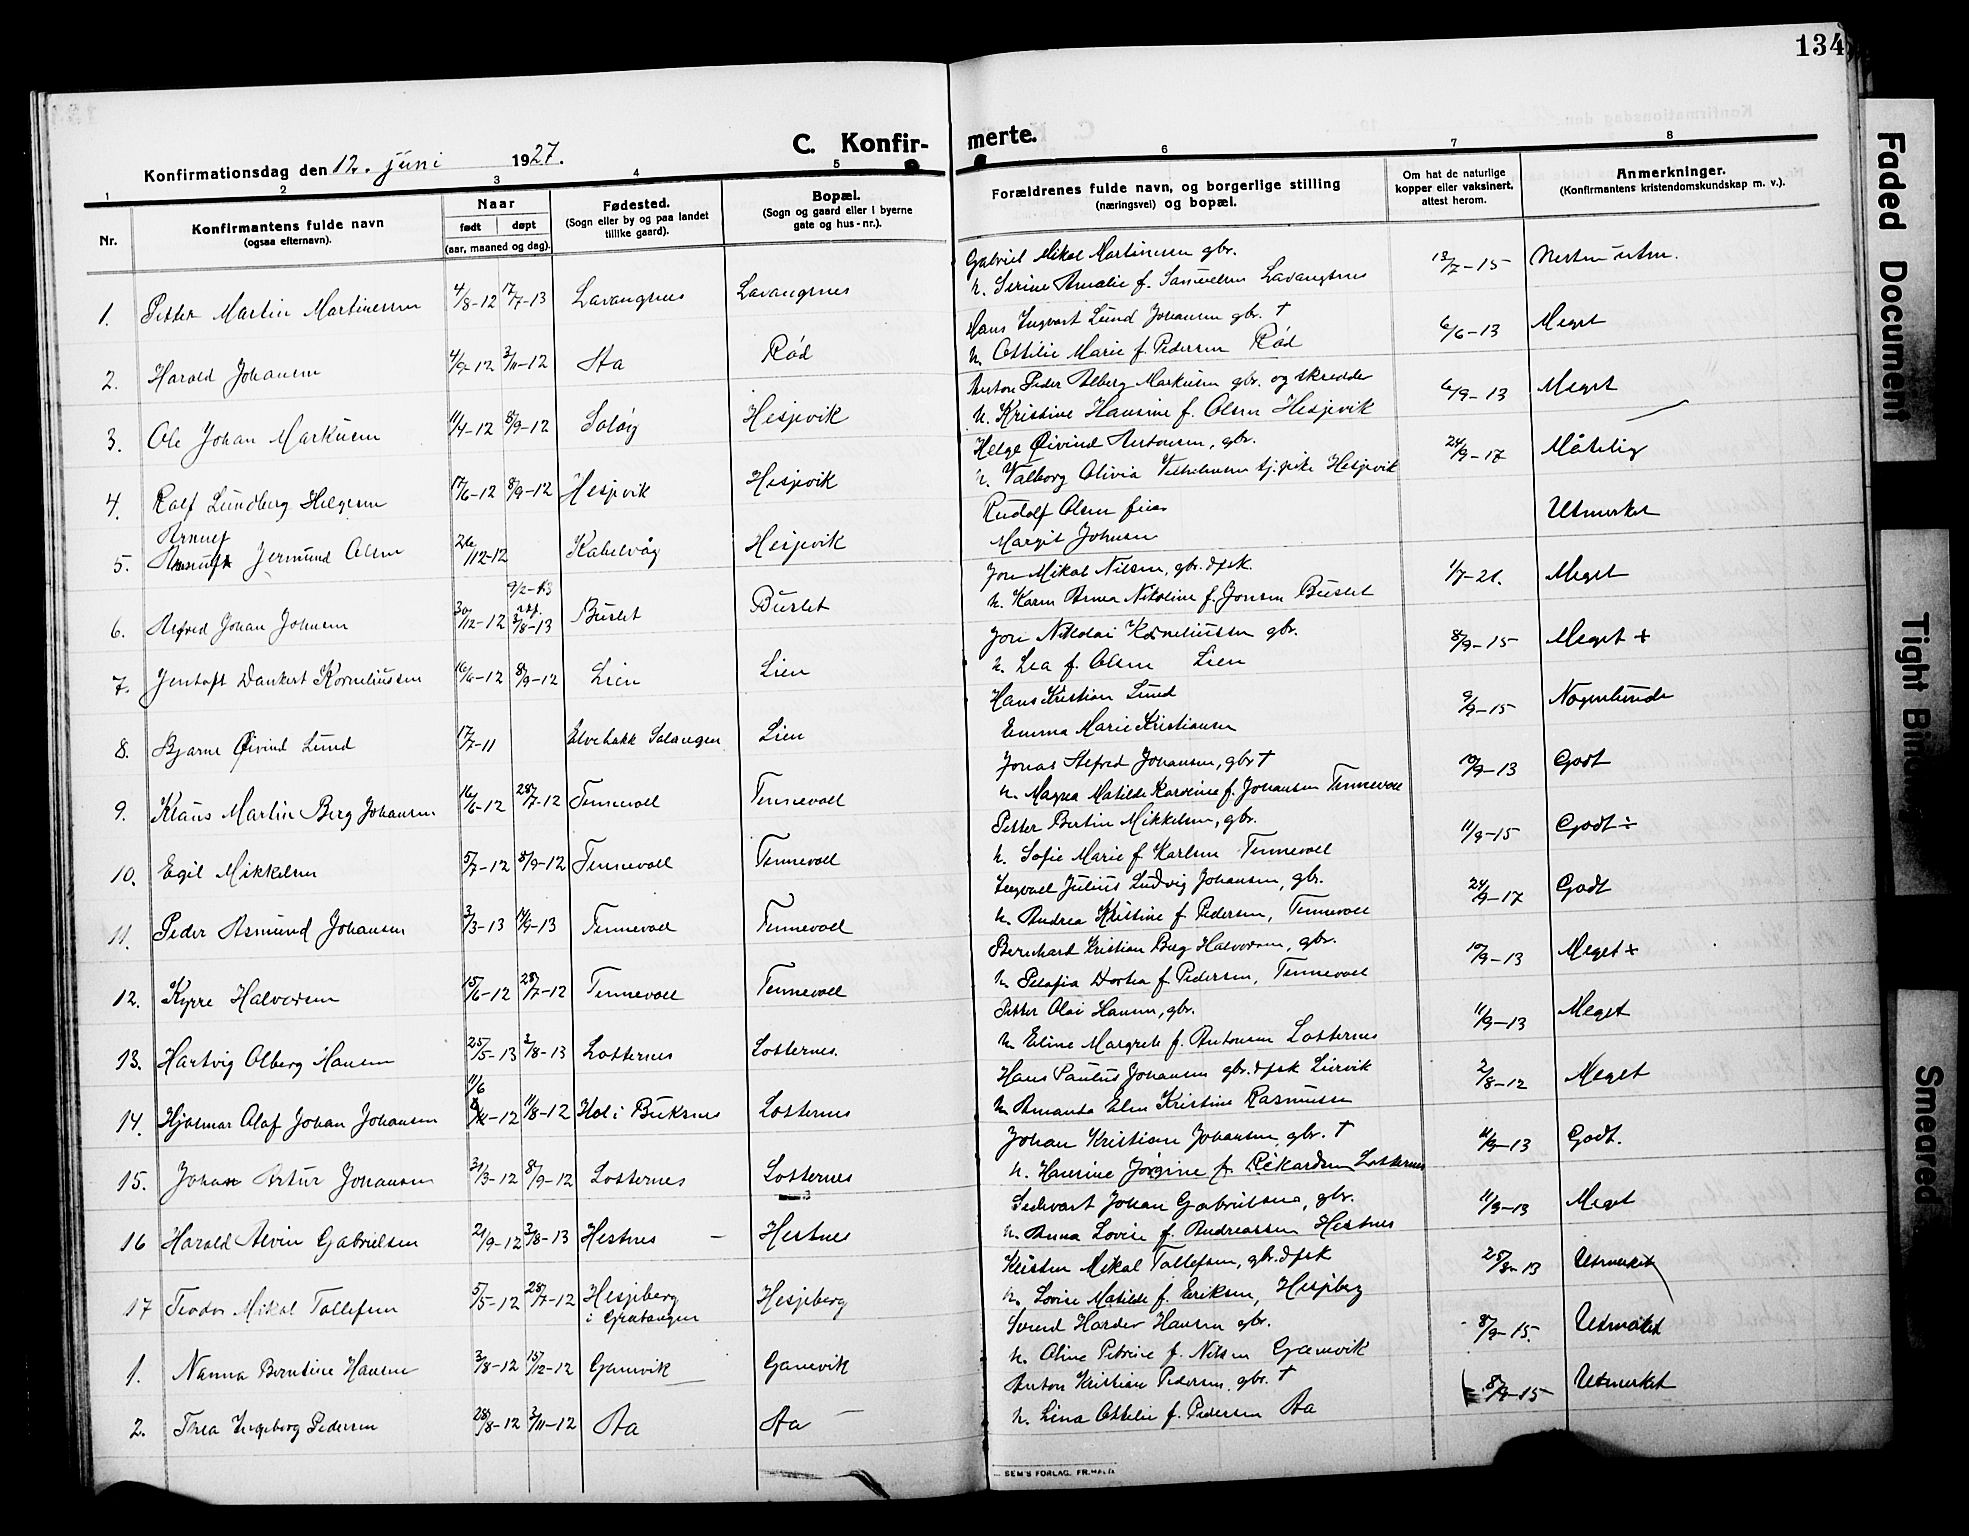 134
Konfirmationsdag den 12. juni 1927.
C. Konfirmerte.
1 2 3 4 5 6 7 8
Nr.
Konfirmantens fulde navn
(ogsaa efternavn).
Naar
født døpt
(aar, maaned og dag).
Fødested.
(Sogn eller by og paa landet
tillike gaard).
Bopæl.
(Sogn og gaard eller i byerne
gate og hus-nr.).
Forældrenes fulde navn, og borgerlige stilling
(næringsvei) og bopæl.
Om hat de naturlige
kopper eller vaksinert,
attest herom.
Anmerkninger.
(Konfirmantens kristendomskundskap m. v.).
1. Petter Martin Martinessen 4/8-12 17/7-13 Lavangnes Lavangnes
Gabriel Mikal Martinesen gbr.
h. Serine Amalie f. Samuelsen Lavangnes 13/7-15 Nesten utm.
2. Harald Johansen 4/9-12 3/11-12 Aa Rød
Hans Ingvart Lund Johansen gbr. †
h. Ottilie Marie f. Pedersen Rød 6/6-13 Meget
3. Ole Johan Markusen 11/4-12 8/9-12 Soløy Hesjevik
Anton Peder Alberg Markusen gbr. og skredder
h. Kristine Hansine f. Olsen Hesjevik 6/9-13 Meget
4. Ralf Lundberg Helgesen 17/6-12 8/9-12 Hesjevik Hesjevik
Helge Øivind Antonsen, gbr.
h. Valborg Olivia Vilhelmsen tj.pike Hesjevik 24/9-17 Måtelig
Arnulf
5. Jermund Olsen 26/12-12 Kabelvåg Hesjevik
Rudolf Olsen
Margit Johnsen Utmerket
9/2-13
6. Alfred Johan Johnsen 30/12-12 3/8-13 Buslet Buslet
Jon Mikal Nilsen, gbr. & fisk.
h. Karen Anna Nikoline f. Jonsen Buslet 1/7-21. Meget
7. Jentoft Dankert Korneliussen 16/6-12 8/9-12 Lien Lien
Jon Nikolai Korneliussen gbr.
h. Lea f. Olsen Lien 8/9-15 Meget +
8. Bjarne Øivind Lund 17/7-11 Elvebakk Salangen Lien
Hans Kristian Lund
Emma Marie Kristiansen 9/9-15 Nogenlunde
9. Klaus Martin Berg Johansen 16/6-12 28/7-12 Tennevoll Tennevoll
Jonas Alfred Johansen, gbr †
h. Magna Matilde Karoline f. Johansen Tennevoll 10/9-13 Godt
10. Egil Mikkelsen 5/7-12 8/9-12 Tennevoll Tennevoll
Petter Bertin Mikkelsen, gbr.
h. Sofie Marie f Karlsen Tennevoll 11/9-15 Godt ÷
11. Peder Asmund Johansen 3/3-13 14/9-13 Tennevoll Tennevoll
Ingvall Julius Ludvig Johansen, gbr.
h. Andrea Kristine f Pedersen, Tennevoll 24/9-17 Godt
12. Kyrre Halvorsen 15/6-12 28/7-12 Tennevoll Tennevoll
Bernhard Kristian Berg Halvorsen, gbr.
h. Dortea f Pedersen, Tennevoll 10/9-13 Meget +
13. Hartvig Olberg Hansen 25/5-13 3/8-13 Lotternes Lotternes.
Petter Olai Hansen, gbr.
h. Eline Margrete f. Antonsen Lotternes 11/9-13 Meget
11/6
14. Hjalmar Olaf Johan Johansen 12 11/8-12 Hol i Buksnes Lotternes
Hans Paulus Johansen gbr. & fisk Leirvik
h. Amanda Elen Kristine Rasmussen 2/8-12 Meget
15. Johan Artur Johansen 31/3-12 8/9-12 Lotternes Lotternes
Johan Kristian Johansen gbr. †
h. Hansine Jørgine f. Rikardsen Lotternes 11/9-13 Godt.
16 Harald Alvin Gabrielsen 21/9-12 3/8-13 Hestnes – Hestnes
Sedvart Johan Gabrielsen, gbr.
h. Anna Lovise f. Andreassen Hestnes 11/9-13 Meget
17 Teodor Mikal Tollefsen 5/5-12 28/7-12 Hesjeberg
i Gratangen Hesjeberg
Kristen Mikal Tollefsen, gbr. & fisk
h. Lovise Matilde f. Eriksen, Hesjeberg 25/8-13 Utmerket
1. Nanna Berntine Hansen 3/8-12 15/12-12 Gamvik Gamvik
Svend Harder Hansen gbr.
h. Oline Petrine f. Nilsen Gamvik 8/9-15. Utmerket
2. Thea Ingeborg Pedersen 28/8-12 3/11-12 Aa Aa –
Anton Kristian Pedersen, gbr. †
h. Lina Ottilie f. Pedersen Aa 8/9-15 Utmerket
SEM'S FORLAG, FR.HALD
Faded Document
Tight Bin
Smeared